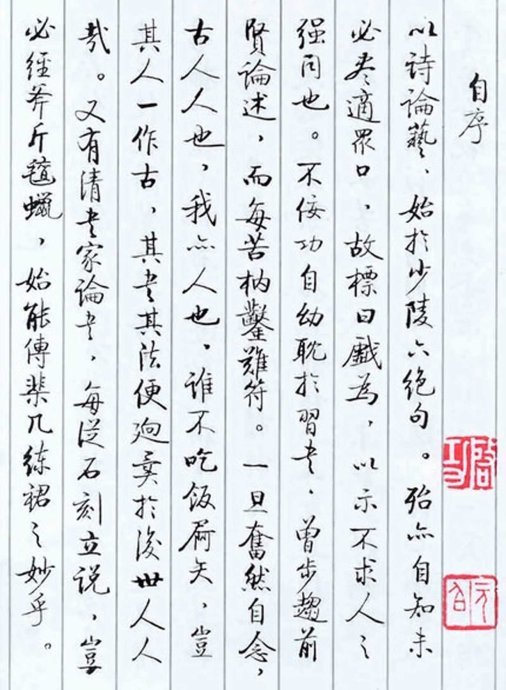 自序
以詩論藝、始於少陵六絶句。殆亦自知未
必盡適眾口，故標曰戲為，以示不求人之
强同也。不佞功自幼耽於習書，曾步趨前
賢論述，而每苦枘鑿難符。一旦奮然自念，
古人人也，我亦人也，誰不吃飯屙矢，豈
其人一作古，其書其法便迥異於後世人人
哉。又有清書家論書，每從石刻立說，豈
必經斧斤氊蠟，始能傳棐几練裙之妙乎。
啓功
元白